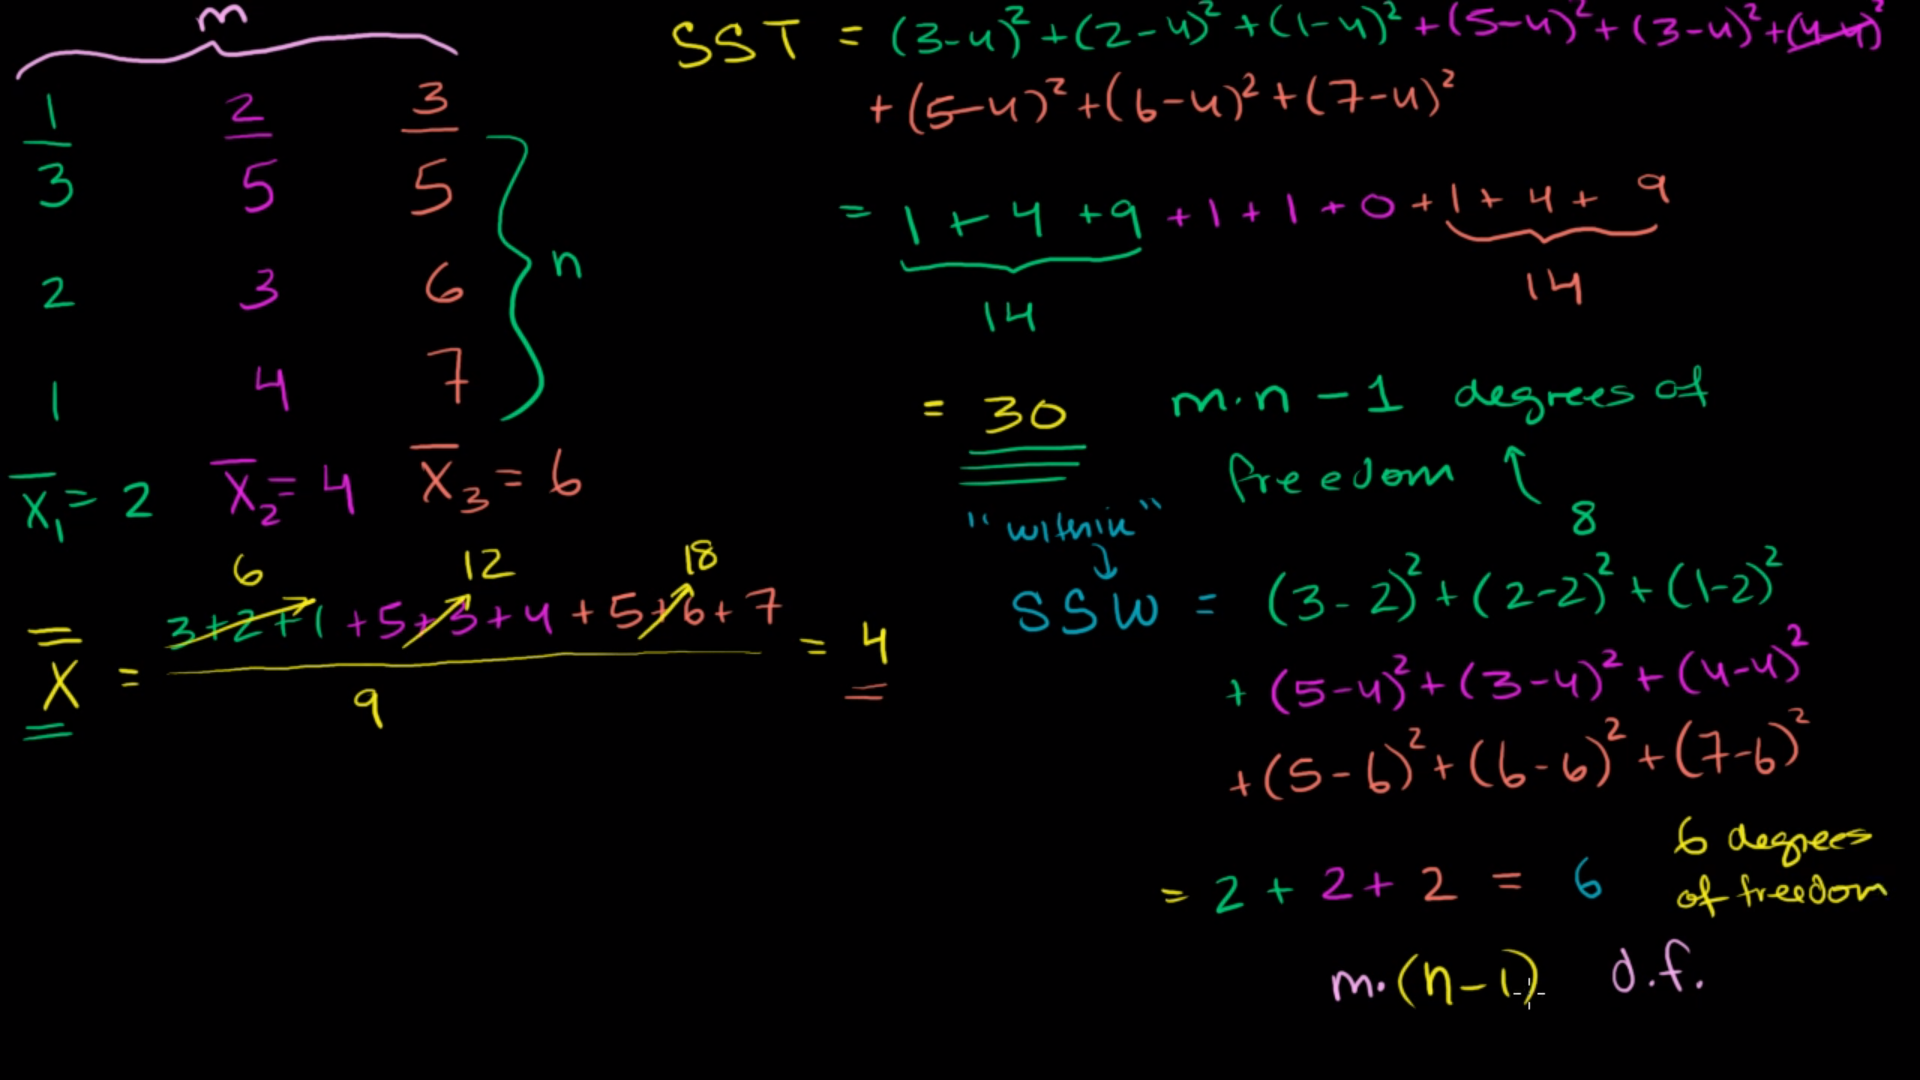 m
1 2 3
3 5 5
2 3 6
1 4 7
n
X̄₁ = 2 X̄₂ = 4 X̄₃ = 6
6 12 18
X̿ = 3+2+1 +5+3+4 +5+6+7 = 4
9
SST = (3-4)² +(2-4)² +(1-4)² +(5-4)² +(3-4)² +(4-4)²
+(5-4)² +(6-4)² +(7-4)²
= 1 + 4 +9 +1 +1 +0 +1 + 4 + 9
14 14
= 30 m·n - 1 degrees of
freedom
8
"within"
SSW = (3-2)² + (2-2)² + (1-2)²
+ (5-4)² + (3-4)² + (4-4)²
+ (5-6)² + (6-6)² + (7-6)²
= 2 + 2 + 2 = 6
6 degrees
of freedom
m·(n-1) d.f.